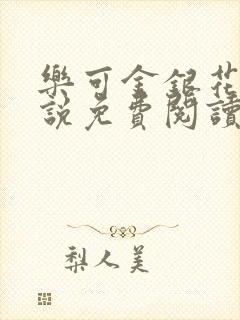 樂可金銀花
說免費閱讀
梨人美